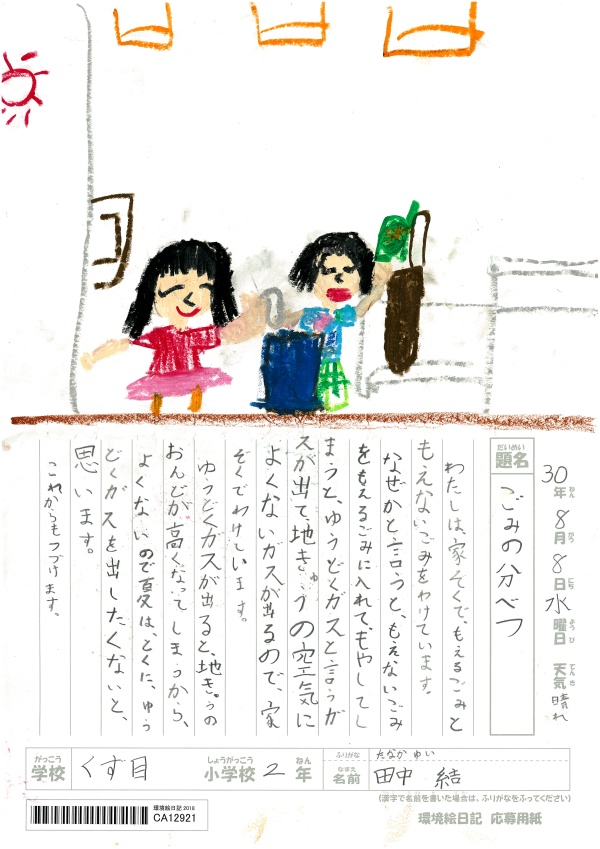 30年8月8日水曜日 天気晴れ
ねん がつ にち ようび てんき
だいめい
題名
ごみの分べつ
わたしは、家ぞくで、もえるごみと
もえないごみをわけています。
なぜかと言うと、もえないごみ
をもえるごみに入れて、もやしてし
まうと、ゆうどくガスと言うガ
スが出て、地きゅうの空気に
よくないガスが出るので、家
ぞくでわけています。
ゆうどくガスが出ると、地きゅうの
おんどが高くなってしまうから、
よくないので夏は、とくに、ゆう
どくガスを出したくないと、
思います。
これからもつづけます。
がっこう しょうがっこう ねん
学校 くず目 小学校 2年
ふりがな たなか ゆい
なまえ
名前 田中 結
(漢字で名前を書いた場合は、ふりがなをふってください)
環境絵日記2018
CA12921
環境絵日記 応募用紙